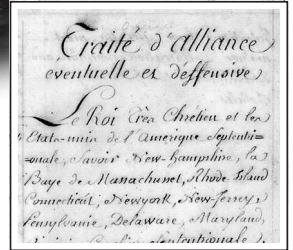 Traité d'alliance
éventuelle et déffensive
Le Roi Très Chrétien et les
Etats-unis de l'Amerique Septentri=
=onale, Savoir New-hampshire, la
Baye de Massachusset, Rhode Island
Connecticut, Newyork, New-Jersey,
Pensylvanie, Delaware, Maryland,
Caroline Septentrionale